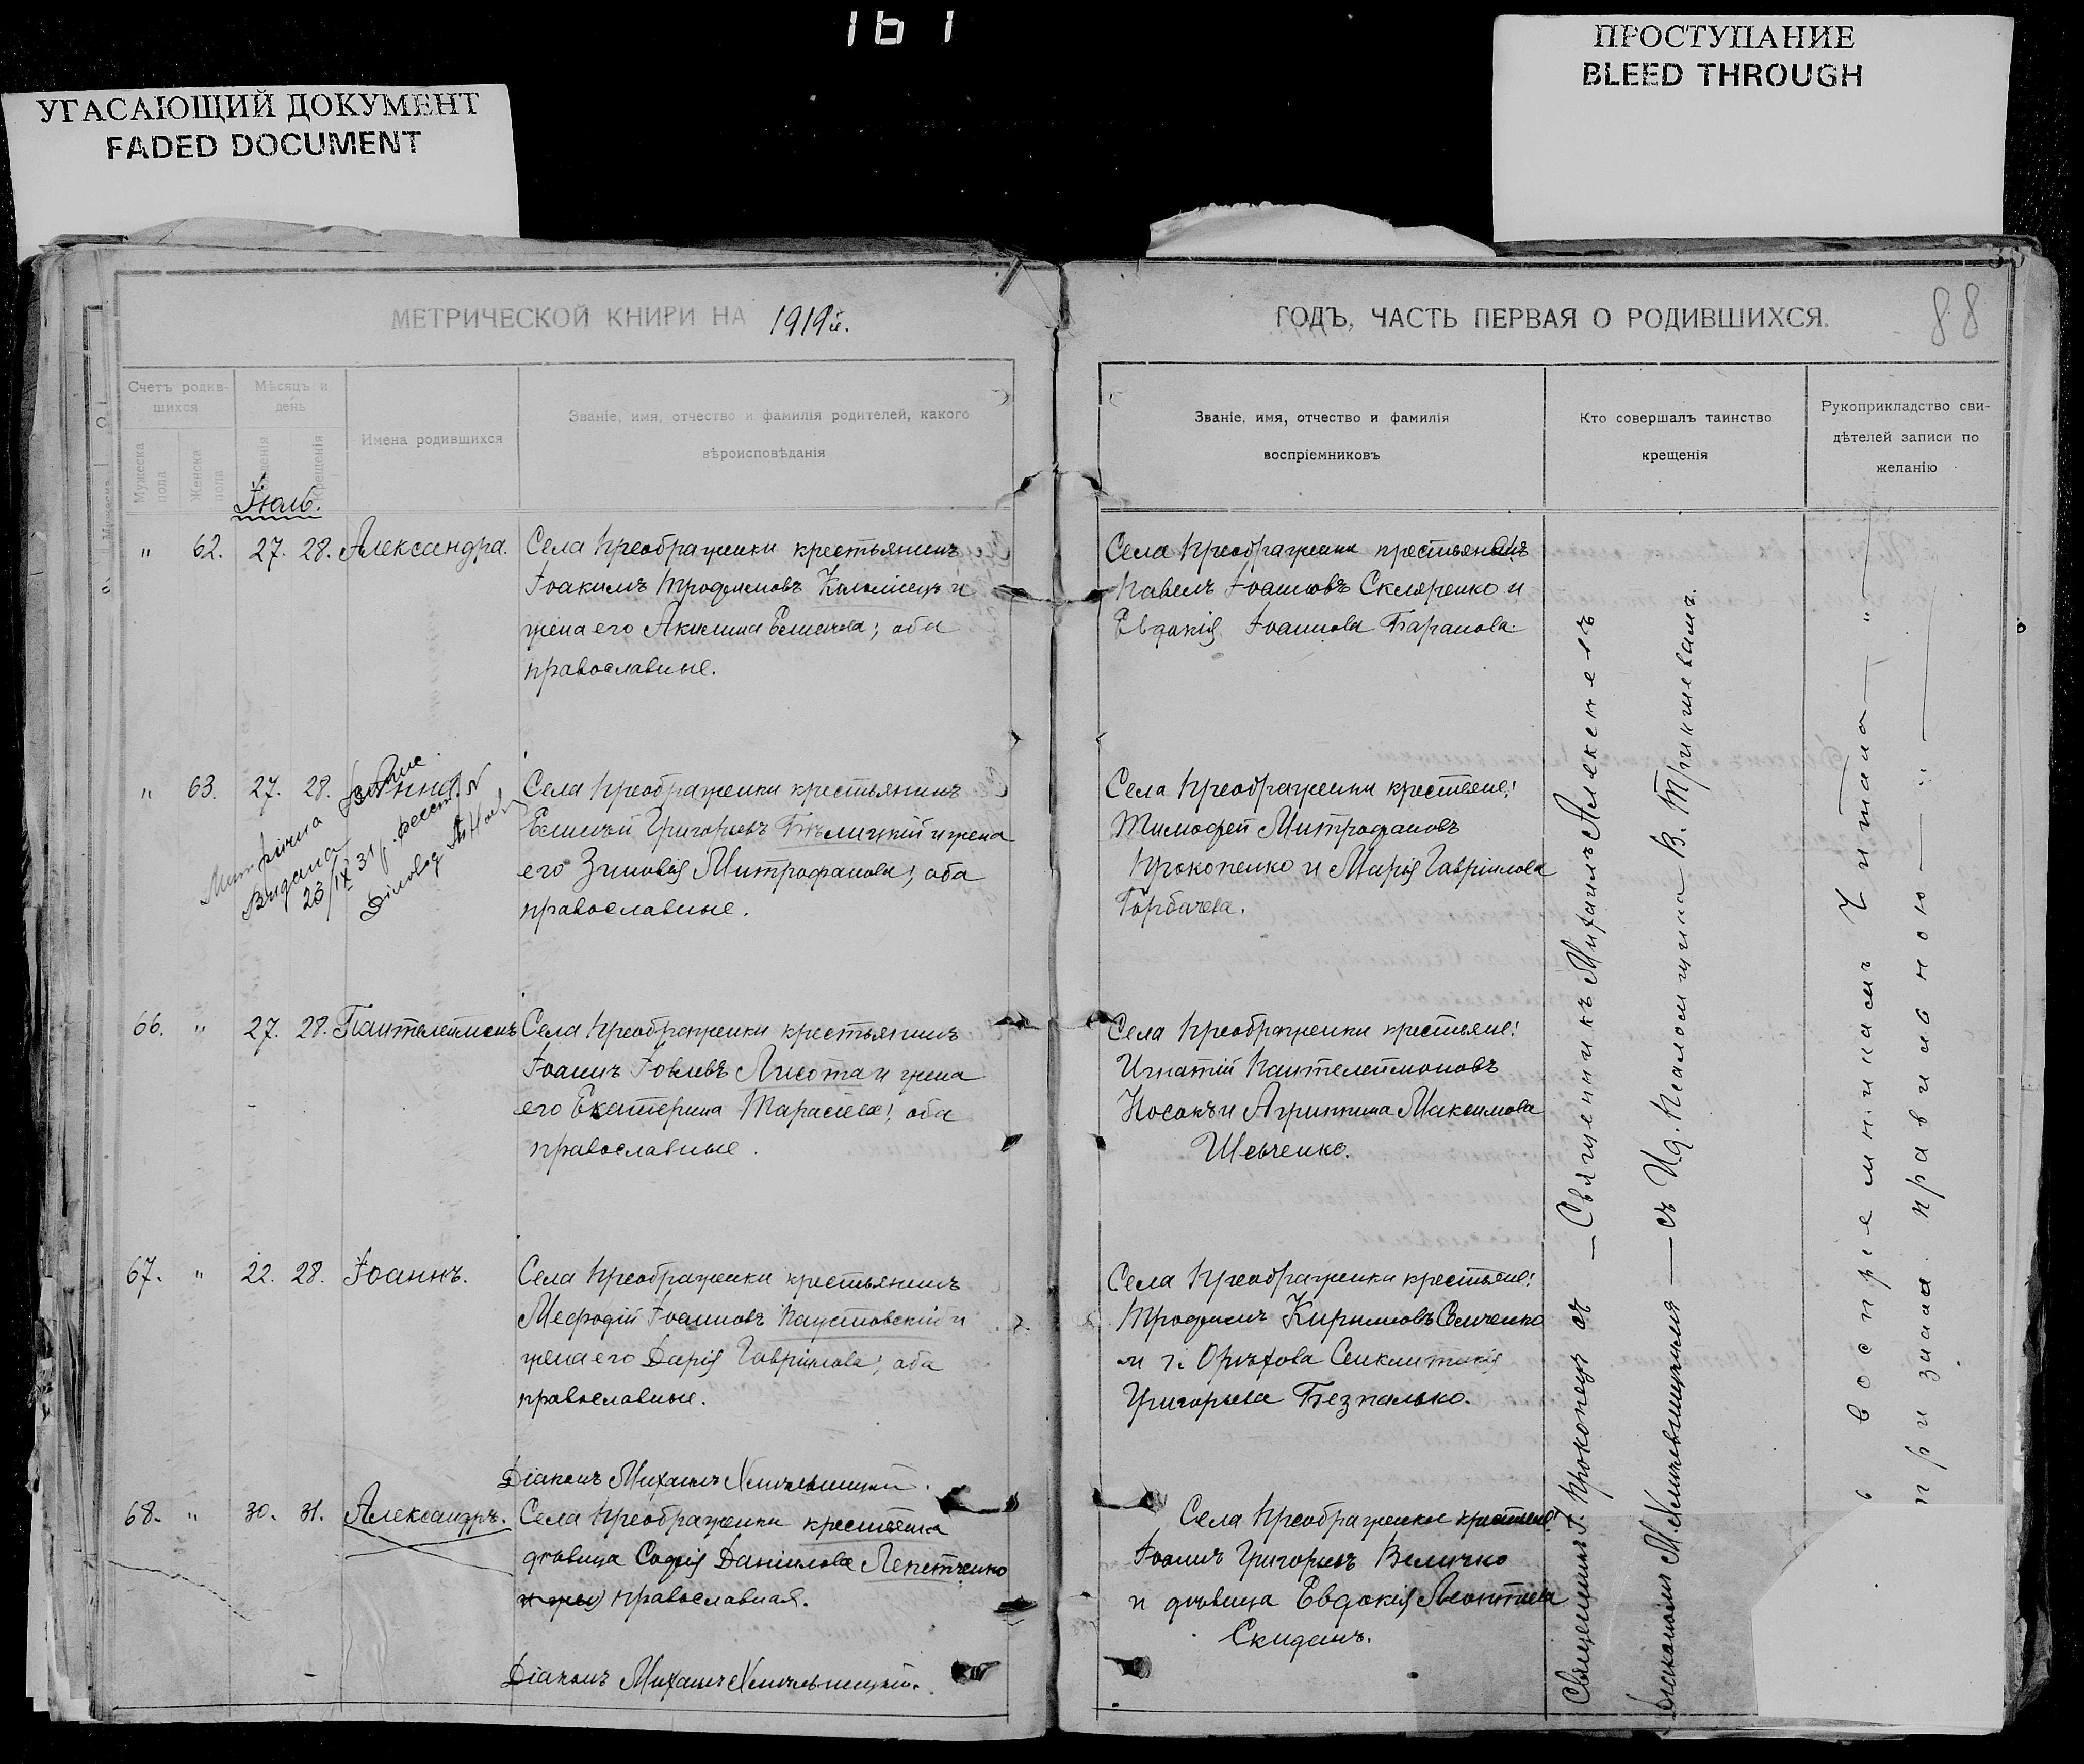 161
УГАСАЮЩИЙ ДОКУМЕНТ
FADED DOCUMENT
ПРОСТУПАНИЕ
BLEED THROUGH
МЕТРИЧЕСКОЙ КНИГИ НА 1919й.
ГОДЪ, ЧАСТЬ ПЕРВАЯ О РОДИВШИХСЯ.
88
Счетъ родив-
шихся
Мужеска
пола
Женска
пола
Мѣсяцъ и
день
рожденія
крещенія
Имена родившихся
Званіе, имя, отчество и фамилія родителей, какого
вѣроисповѣданія
Званіе, имя, отчество и фамилія
воспріемниковъ
Кто совершалъ таинство
крещенія
Рукоприкладство сви-
дѣтелей записи по
желанію
Іюль.
" 62. 27. 28. Александра.
Села Преображенки крестьянинъ
Іоакимъ Трофимовъ Коломіецъ и
жена его Акилина; оба
православные.
Села Преображенки
Павелъ Іоанновъ Скляренко и
Евдокія Іоаннова Баранова.
" 63. 27. 28. Анна
Видана
23/IX 31 р.
Діловод
Села Преображенки крестьянинъ
Елисей Григорьевъ Бѣлицкій и жена
его Зиновія Митрофанова; оба
православные.
Села Преображенки крестьяне:
Тимофей Митрофановъ
Прокопенко и Марія Гавріилова
Горбачева.
66. " 27. 28. Пантелеимонъ
Села Преображенки крестьянинъ
Іоаннъ Іовлевъ Лисота и жена
его Екатерина Тарасіева; оба
православные.
Села Преображенки крестьяне:
Игнатій Пантелеимоновъ
Носокъ и Агриппина Максимова
Шевченко.
67. " 22. 28. Іоаннъ.
Села Преображенки крестьянинъ
Мефодій Іоанновъ Паустовскій и
жена его Дарія Гавріилова; оба
православные.
Села Преображенки крестьяне:
Трофимъ Кирилловъ Величенко
и г. Орѣхова Синклитикія
Григорьева Безпалько.
Діаконъ Михаилъ Хмѣльницкій.
68. " 30. 31. Александръ.
Села Преображенки крестьянка
дѣвица Софія Даніилова Лепетченко
и жена православная.
Села Преображенки крестьяне:
Іоаннъ Григорьевъ Величко
и дѣвица Евдокія Леонтіева
Скиданъ.
Діаконъ Михаилъ Хмѣльницкій.
Священникъ Г. Прокопецъ съ — Священникъ Михаилъ Алексѣевъ
Діакономъ М. Хмѣльницкимъ — съ Ид. Псаломщика В. Тринцевымъ.
воспреемникамъ читала — " —
признана правильною — " —